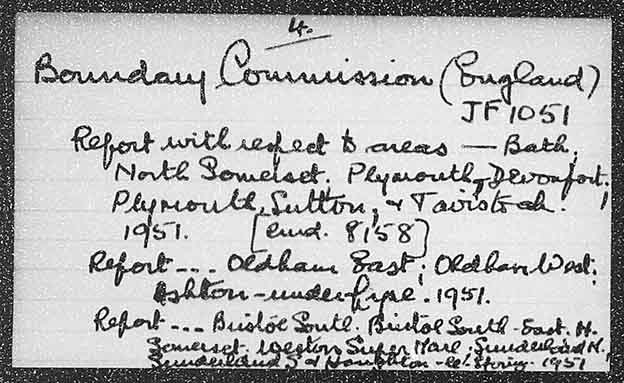 4.
Boundary Commission (England)
JF 1051
Report with respect to areas — Bath;
North Somerset; Plymouth, Devonport;
Plymouth, Sutton; & Tavistock.
1951. [Cmd. 8158]
Report --- Oldham East; Oldham West;
Ashton-under-Lyne. 1951.
Report --- Bristol South. Bristol South-East. N.
Somerset. Weston Super Mare. Sunderland N.
Sunderland S & Houghton-le-Spring. 1951